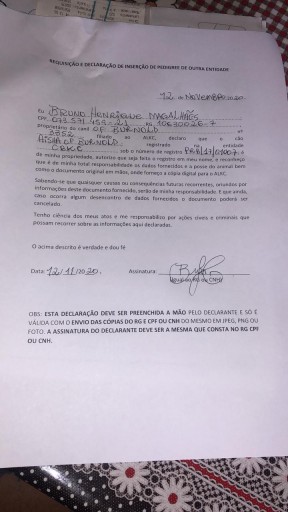 REQUISIÇÃO E DECLARAÇÃO DE INSERÇÃO DE PEDIGREE DE OUTRA ENTIDADE
12 de NOVEMBRO 2020
Eu BRUNO HENRIQUE MAGALHÃES
CPF RG
proprietário do canil OF BURNOLD nº
3352 filiado ao AUKC, declaro que o cão
OF BURNOLD registrado na entidade
CBKC sob o número de registro
de minha propriedade, autorizo que seja feito o registro em meu nome, e reconheço
que é de minha total responsabilidade os dados fornecidos e a posse do animal bem
como o documental original em mãos, onde forneço a cópia digital para o AUKC.
Sabendo-se que quaisquer causas ou consequências futuras recorrentes, oriundos por
informações deste documento fornecido, serão de minha responsabilidade. E que ainda,
caso ocorra algum desencontro de dados fornecidos o documento poderá ser
cancelado.
Tenho ciência dos meus atos e me responsabilizo por ações cíveis e criminais que
possam recorrer sobre as informações aqui declaradas.
O acima descrito é verdade e dou fé
Data: 12/11/2020. Assinatura:
OBS: ESTA DECLARAÇÃO DEVE SER PREENCHIDA A MÃO PELO DECLARANTE E SÓ É
VÁLIDA COM O ENVIO DAS CÓPIAS DO RG E CPF OU CNH DO MESMO EM JPEG, PNG OU
FOTO. A ASSINATURA DO DECLARANTE DEVE SER A MESMA QUE CONSTA NO RG CPF
OU CNH.